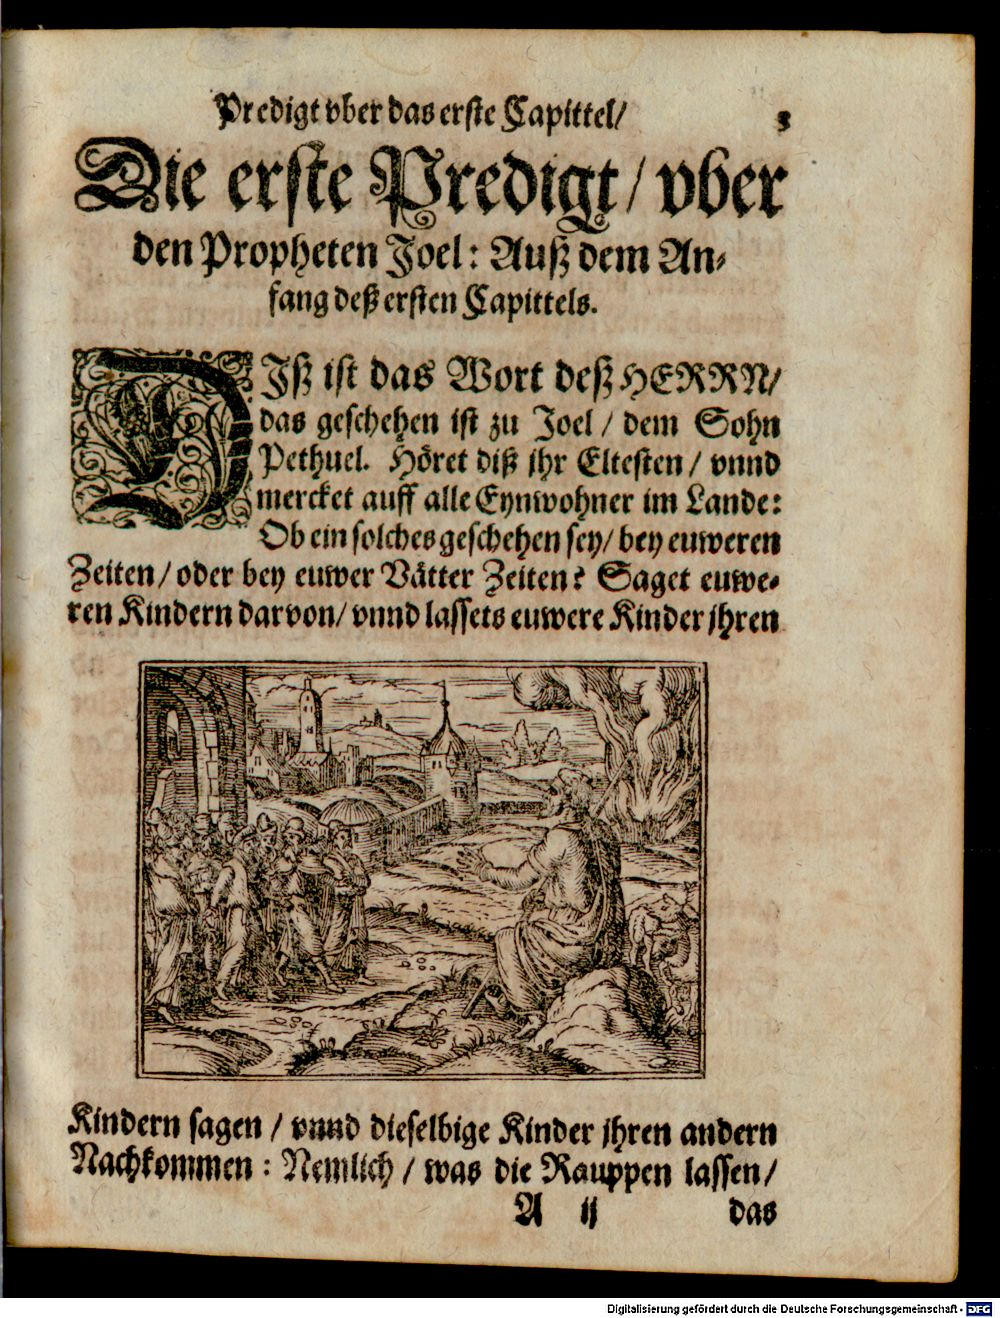 Predigt vber das erste Capittel/ 3
Die erste Predigt / vber
den Propheten Joel: Auß dem An⸗
fang deß ersten Capittels.
DIß ist das Wort deß HERRN/
das geschehen ist zu Joel / dem Sohn
Pethuel. Höret diß jhr Eltesten / vnnd
mercket auff alle Eynwohner im Lande:
Ob ein solches geschehen sey/ bey euweren
Zeiten / oder bey euwer Vätter Zeiten? Saget euwe⸗
ren Kindern darvon/ vnnd lassets euwere Kinder jhren
Kindern sagen / vnnd dieselbige Kinder jhren andern
Nachkommen : Nemlich / was die Rauppen lassen /
A ij das
Digitalisierung gefördert durch die Deutsche Forschungsgemeinschaft - DFG